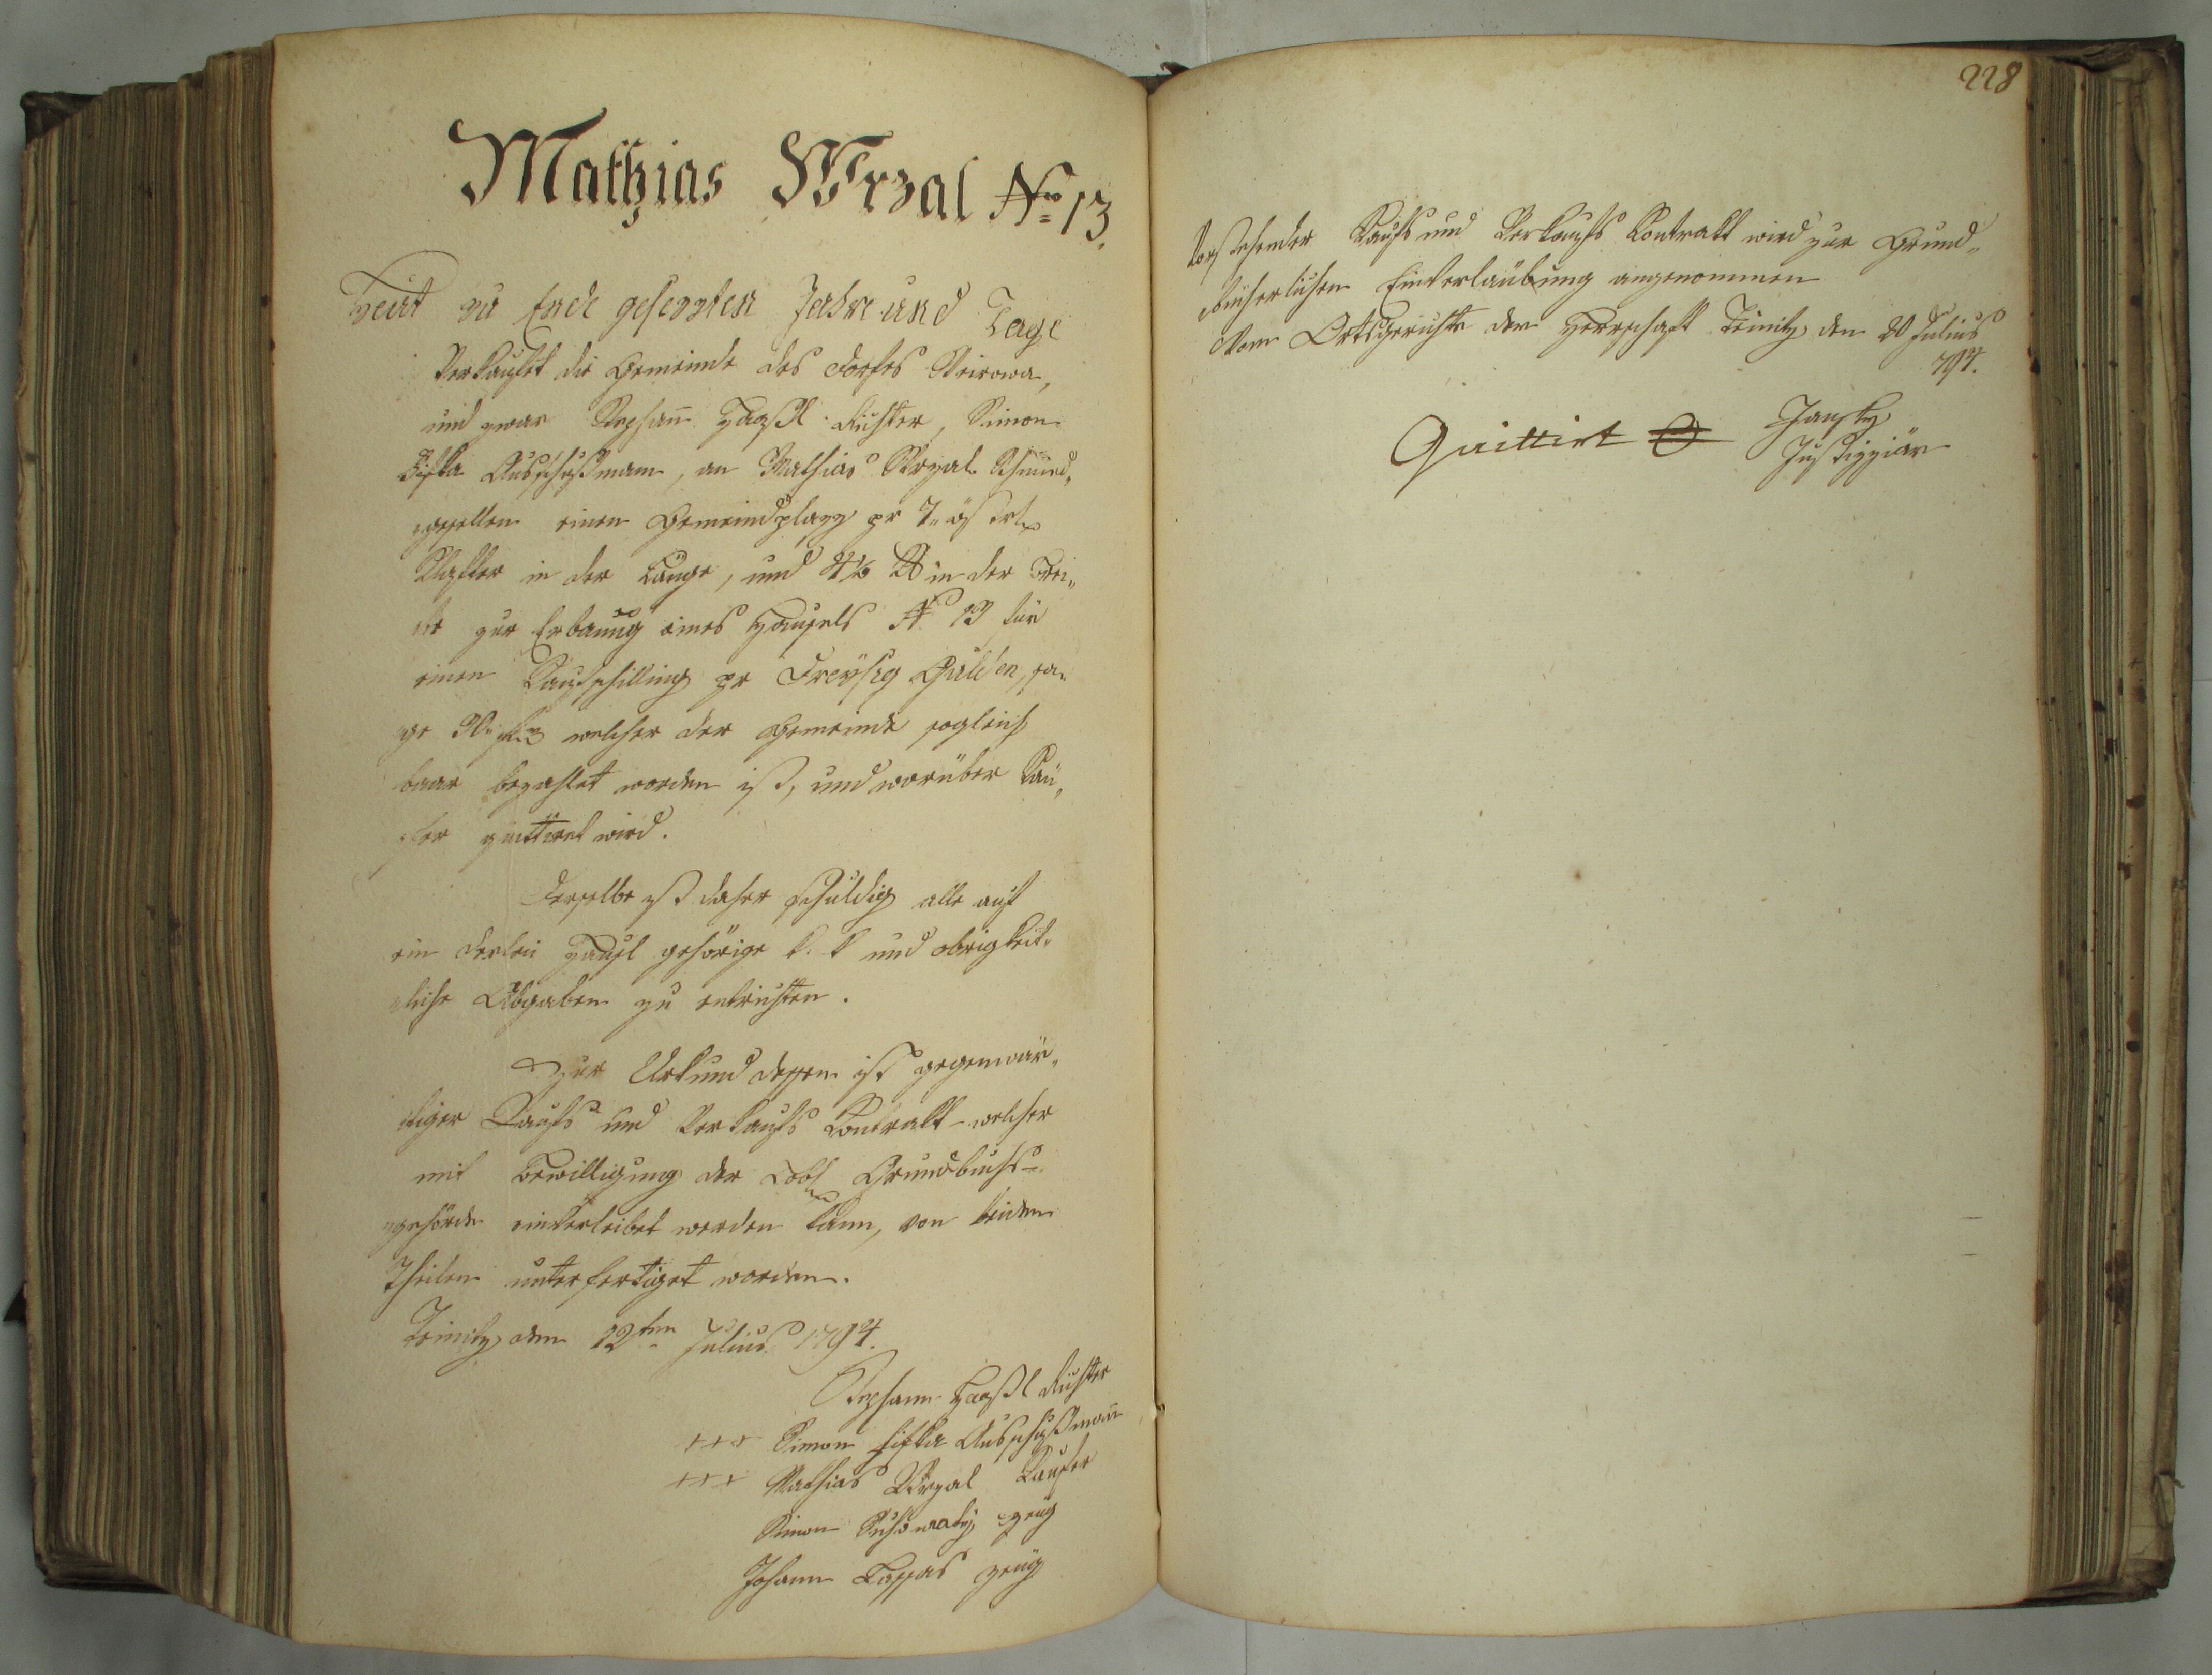 Mathias Wrzal Nro 13.
Heut zu Ende gesezzten Jahr und Tage
Verkaufet die Gemeinde des Dorfes
und zwar Richter, Simon
Ausschußmann, an Mathias Wrzal Schmied„
gesellen einen Gemeindplazz pr 7
Klafter in der Länge, und in der Brei„
te zur Erbauung eines Hausels N 13 für
einen Kaufschilling pr Dreyßig Gulden, sa„
ge 30 welcher der Gemeinde sogleich
baar bezahlet worden ist, und worüber Käu„
fer quittiret wird.
Derselbe ist daher schuldig alle auf
ein derlei Hausl gehörige k. k und obrigkeit„
liche Abgaben zu entrichten.
Zur Urkund dessen ist gegenwär„
tiger Kaufs und Verkaufs Kontrakt welcher
mit Bewilligung der Löbl Grundbuchs„
behörde einverleibet werden kann, von beiden
Theilen unterfertiget worden.
den 12ten Julius 1794.
Richter
+++ Simon Ausschußmann
+++ Mathias Wrzal Kaufer
Simon Zeug
Johann Zeug
228
Vorstehender Kaufs und Verkaufs Kontrakt wird zur Grund„
bücherlichen Einverlaübung angenommen
Vom Ortsgerichte der Herrschaft den 20 Julius
794.
Quittirt
Justizziär